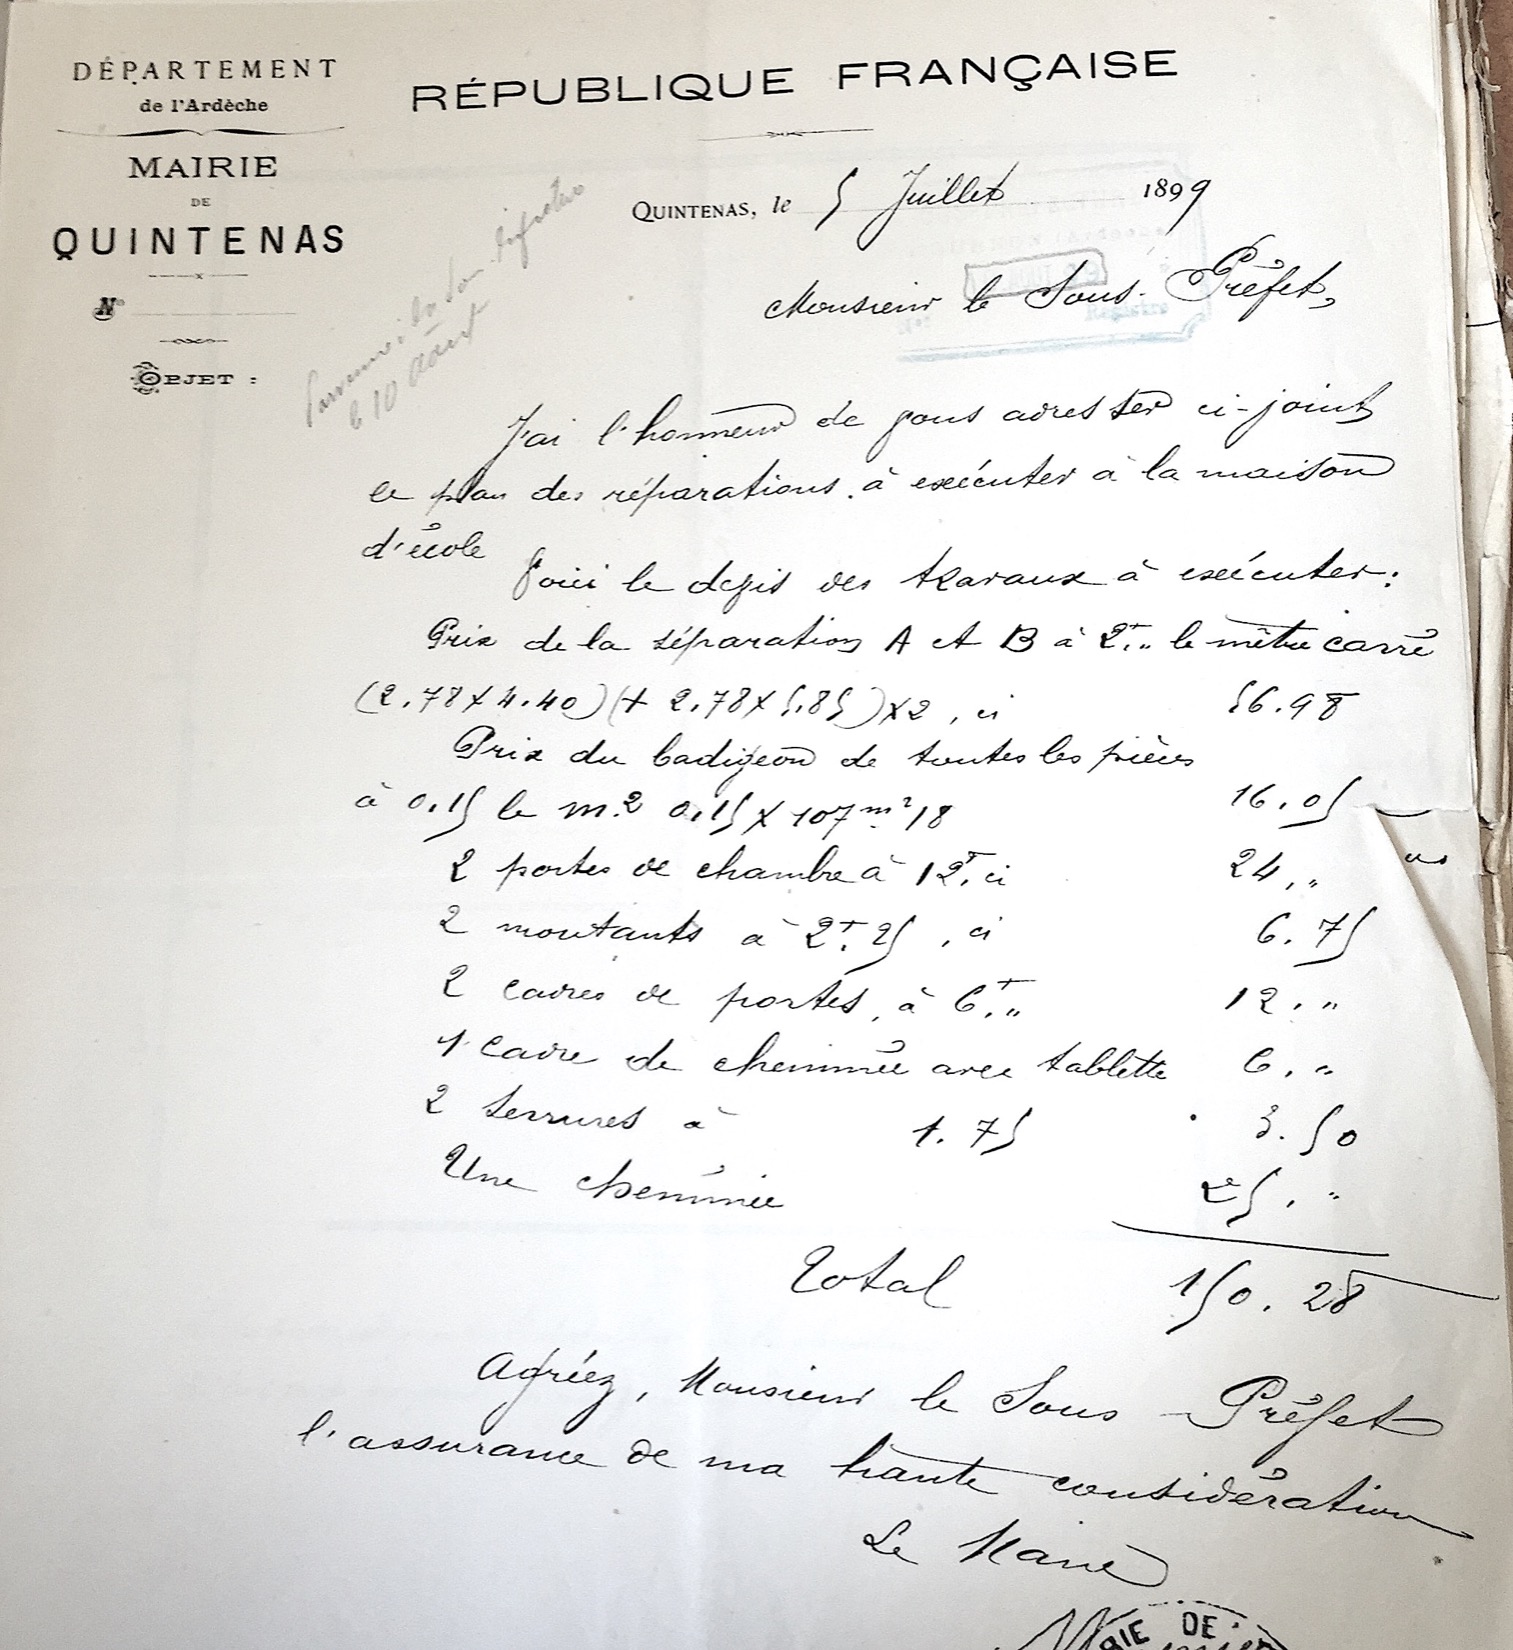 DÉPARTEMENT
de l'Ardèche
MAIRIE
DE
QUINTENAS
N°
OBJET :
RÉPUBLIQUE FRANÇAISE
QUINTENAS, le 5 Juillet 1899
le 10 août
Monsieur le Sous-Préfet,
J'ai l'honneur de vous adresser ci-joint
le plan des réparations à exécuter à la maison
d'école
Voici le devis des travaux à exécuter :
Prix de la séparation A et B à 2f.,, le mètre carré
(2.78 x 4.40) (+ 2.78 x 5.85) x 2, ci 56.98
Prix du badigeon de toutes les pièces
à 0.15 le m.2 0.15 x 107m218 16.05
2 portes de chambre à 12f. ci 24.,,
2 montants à 2f.25, ci 6.75
2 cadres de portes, à 6f.,, 12.,,
1 cadre de cheminée avec tablette 6.,,
2 serrures à 1.75 3.50
Une cheminée 25.,,
Total 150.28
Agréez, Monsieur le Sous-Préfet
l'assurance de ma haute considération
Le Maire
RIE DE